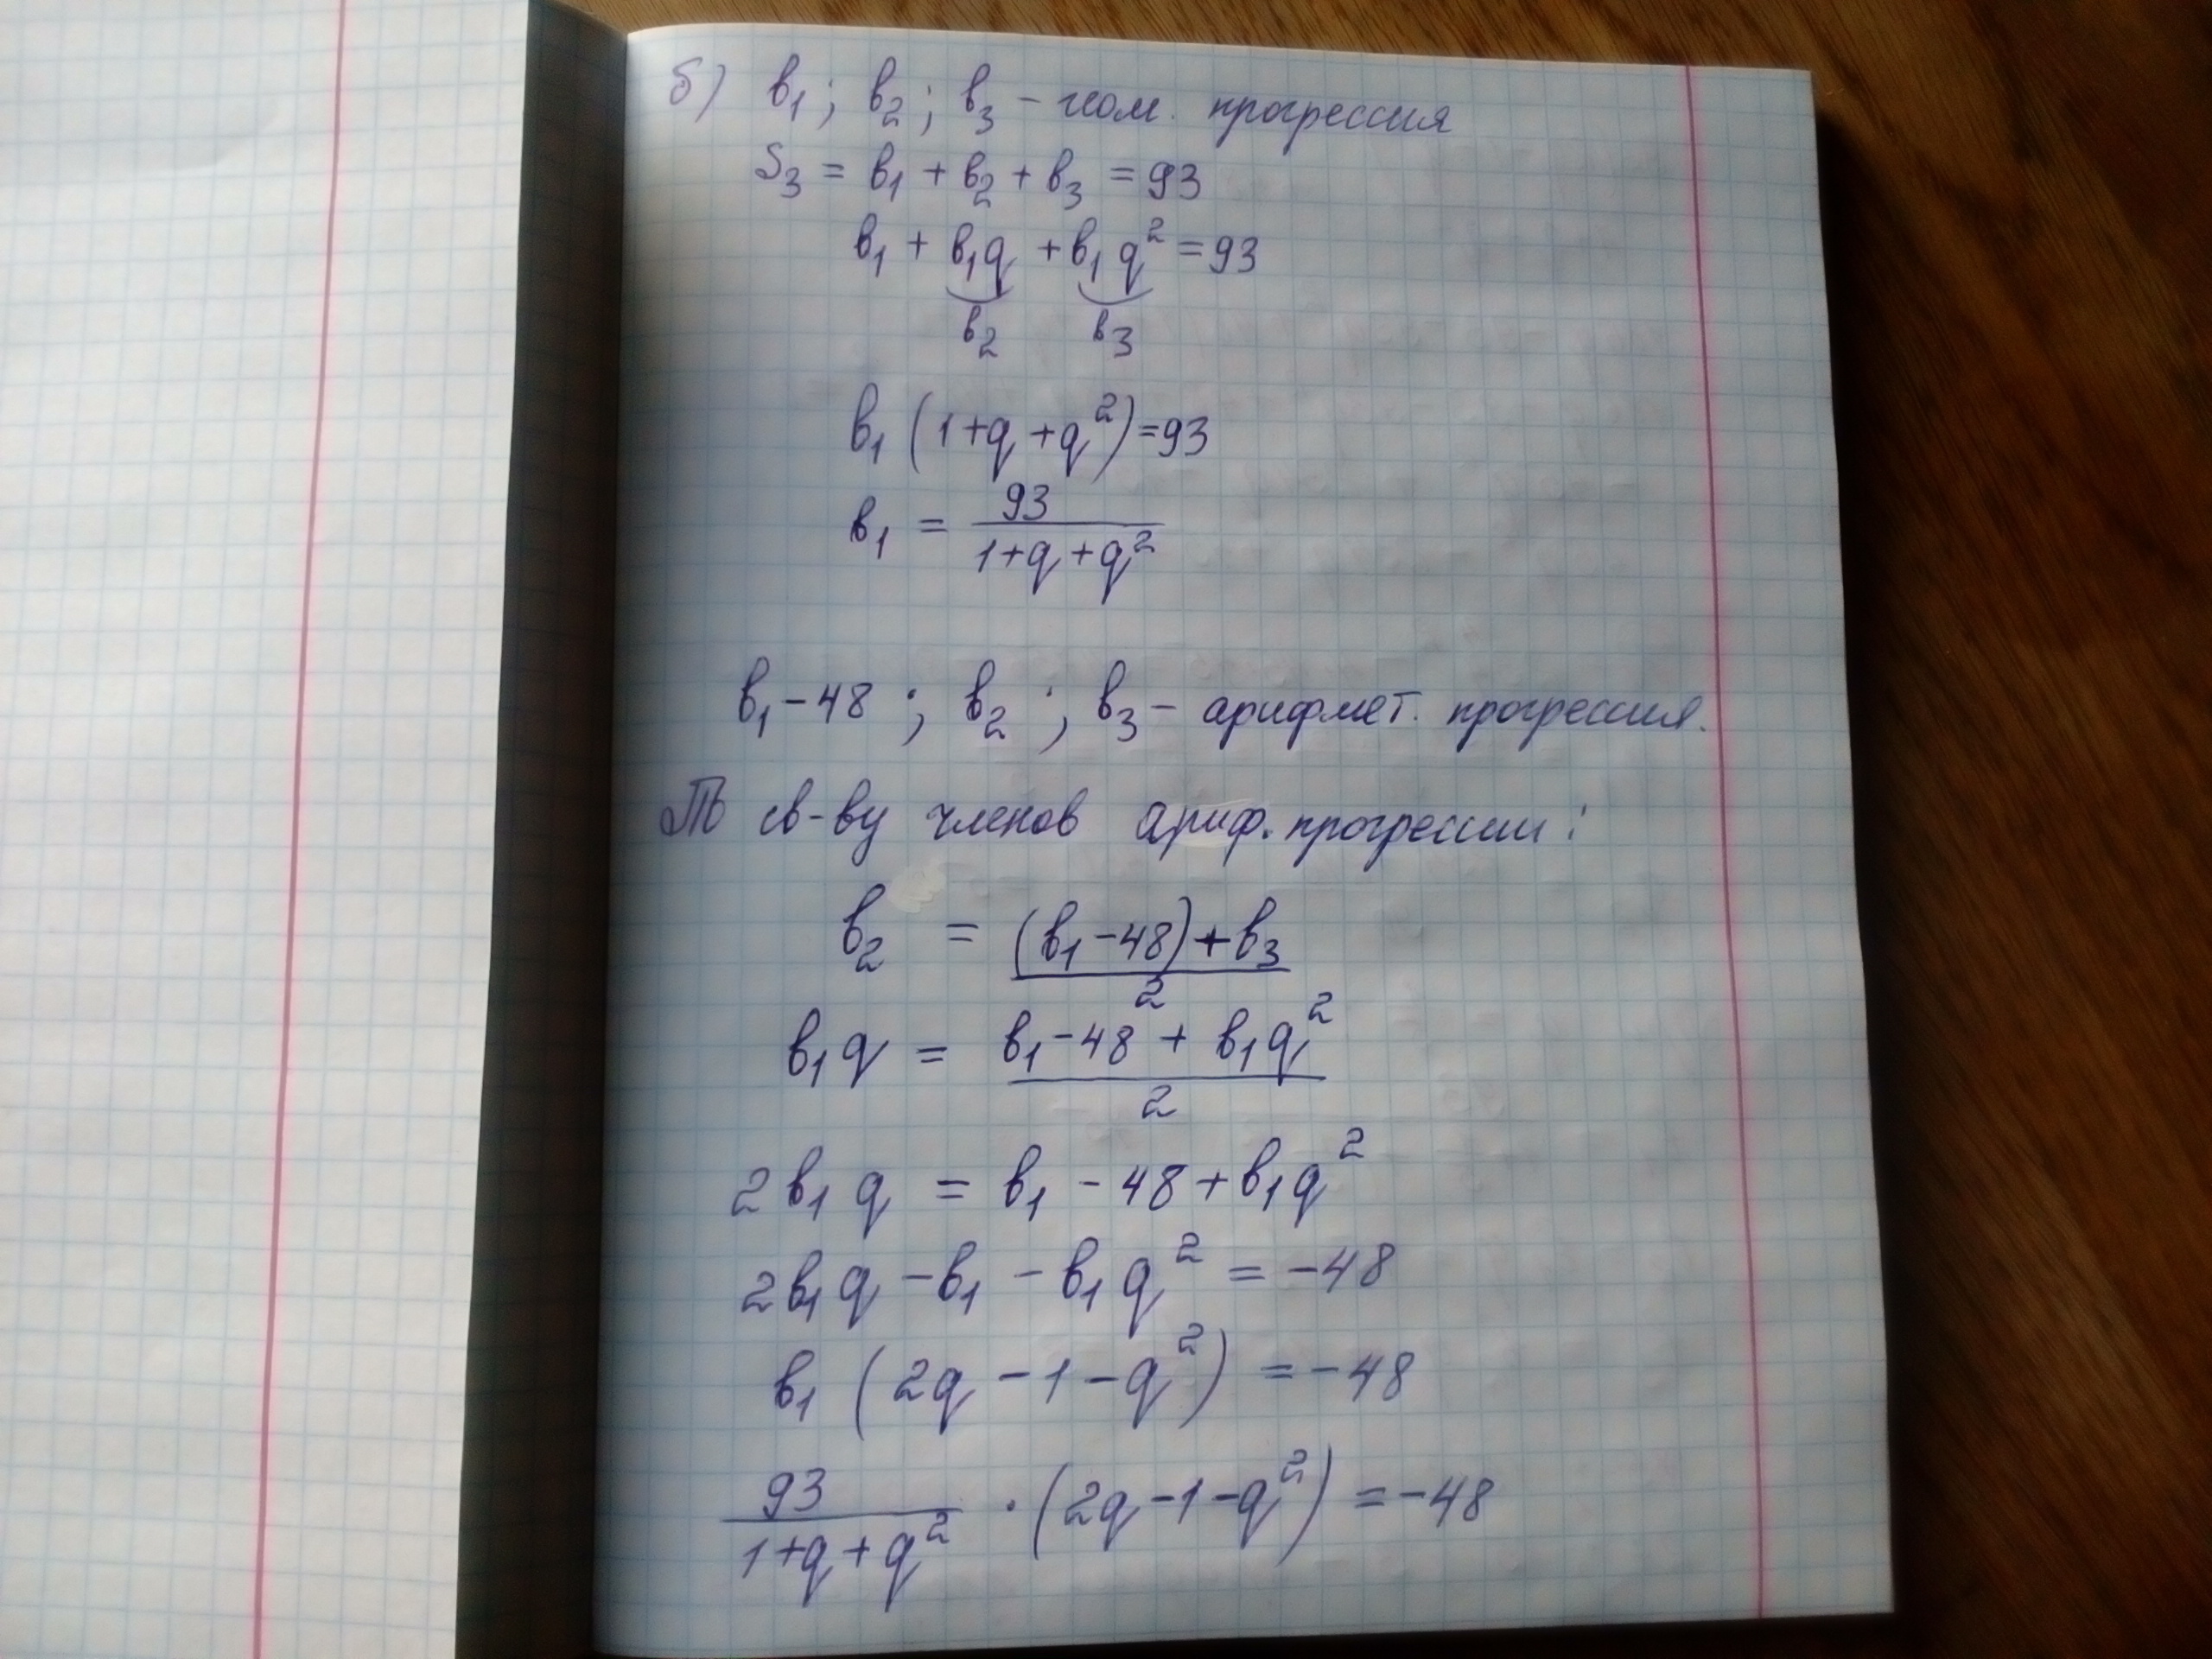 б) в₁; в₂; в₃ – геом. прогрессия
S₃ = в₁ + в₂ + в₃ = 93
в₁ + в₁q + в₁q² = 93
в₂ в₃
в₁ (1+q+q²)=93
в₁ = 93/(1+q+q²)
в₁ – 48; в₂; в₃ – арифмет. прогрессия.
По св-ву членов ариф. прогрессии:
в₂ = ((в₁ – 48) + в₃)/2
в₁q = (в₁ – 48 + в₁q²)/2
2в₁q = в₁ – 48 + в₁q²
2в₁q – в₁ – в₁q² = –48
в₁ (2q – 1 – q²) = –48
93/(1+q+q²) · (2q – 1 – q²) = –48